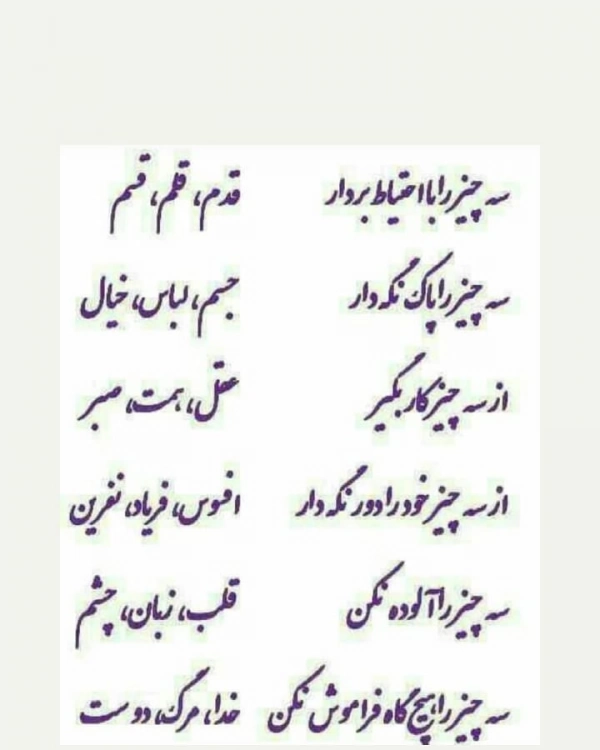 سه چیز را با احتیاط بردار قدم، قلم، قسم
سه چیز را پاک نگه دار جسم، لباس، خیال
از سه چیز کار بگیر عقل، همت، صبر
از سه چیز خود را دور نگه دار افسوس، فریاد، نفرین
سه چیز را آلوده نکن قلب، زبان، چشم
سه چیز را هیچ گاه فراموش نکن خدا، مرگ، دوست